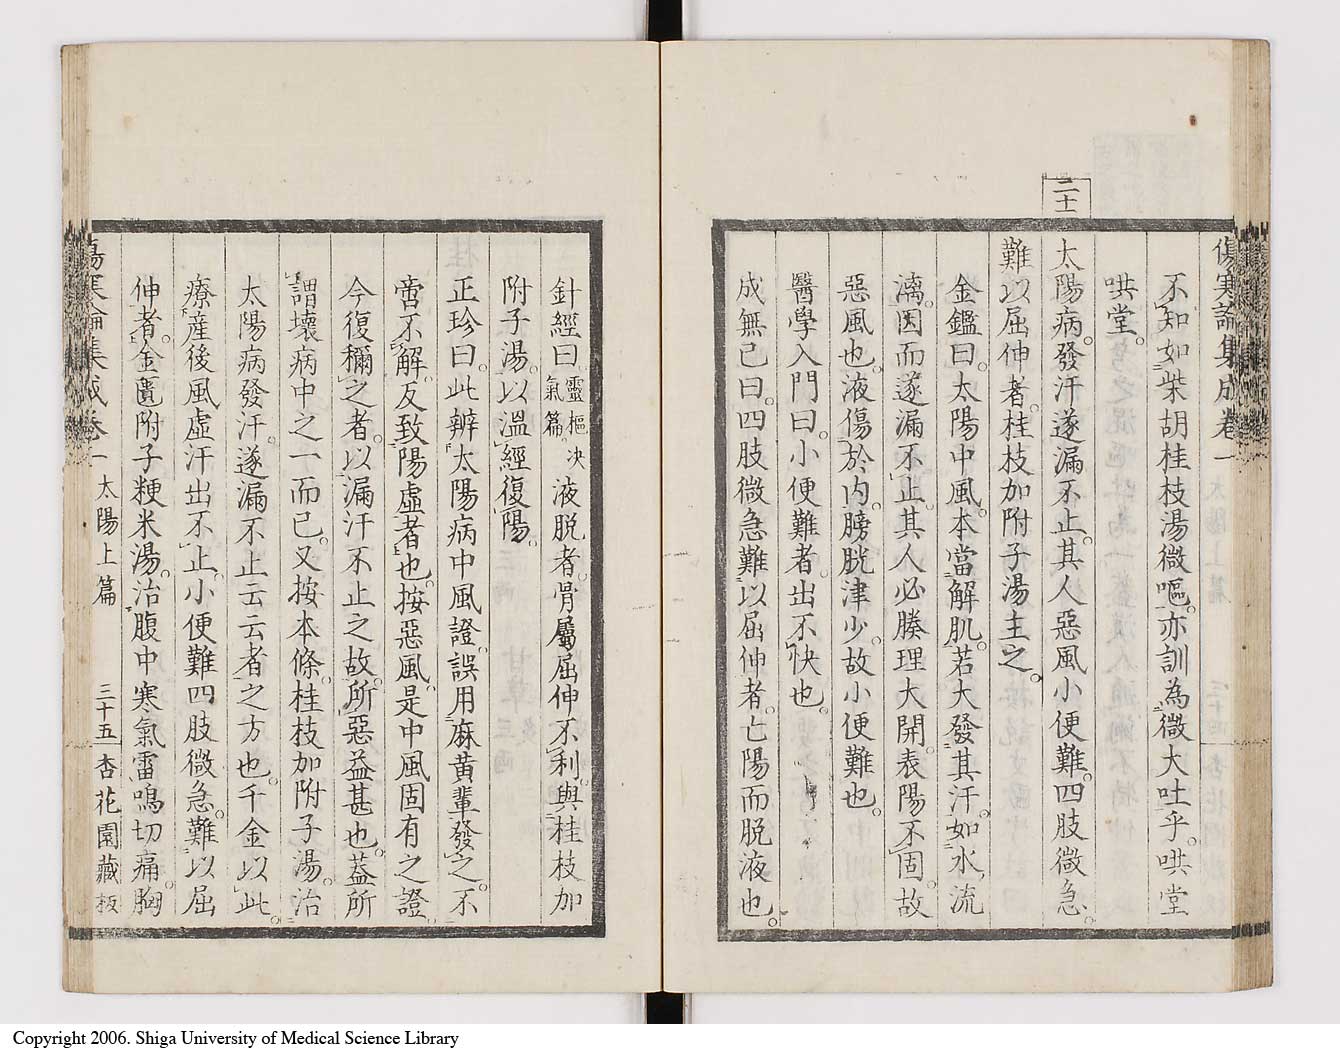 傷寒論集成卷一
不知如柴胡桂枝湯微嘔。亦訓為微大吐乎。哄堂
哄堂。
二十
太陽病。發汗遂漏不止。其人惡風小便難。四肢微急。
難以屈伸者。桂枝加附子湯主之。
金鑑曰。太陽中風。本當解肌。若大發其汗。如水流
漓。因而遂漏不止。其人必腠理大開。表陽不固。故
惡風也。液傷於內。膀胱津少。故小便難也。
醫學入門曰。小便難者。出不快也。
成無己曰。四肢微急難以屈伸者。亡陽而脫液也。
針經曰。靈樞決氣篇。液脫者。骨屬屈伸不利。與桂枝加
附子湯。以溫經復陽。
正珍曰。此辨太陽病中風證。誤用麻黃輩發之。不
啻不解。反致陽虛者也。按惡風。是中風固有之證。
今復稱之者。以漏汗不止之故。所惡益甚也。蓋所
謂壞病中之一而已。又按本條。桂枝加附子湯。治
太陽病發汗。遂漏不止云云者之方也。千金以此。
療產後風虛汗出不止。小便難四肢微急。難以屈
伸者。金匱附子粳米湯。治腹中寒氣雷鳴切痛。胸
傷寒論集成卷一 太陽上篇 三十五 杏花園藏板
Copyright 2006. Shiga University of Medical Science Library